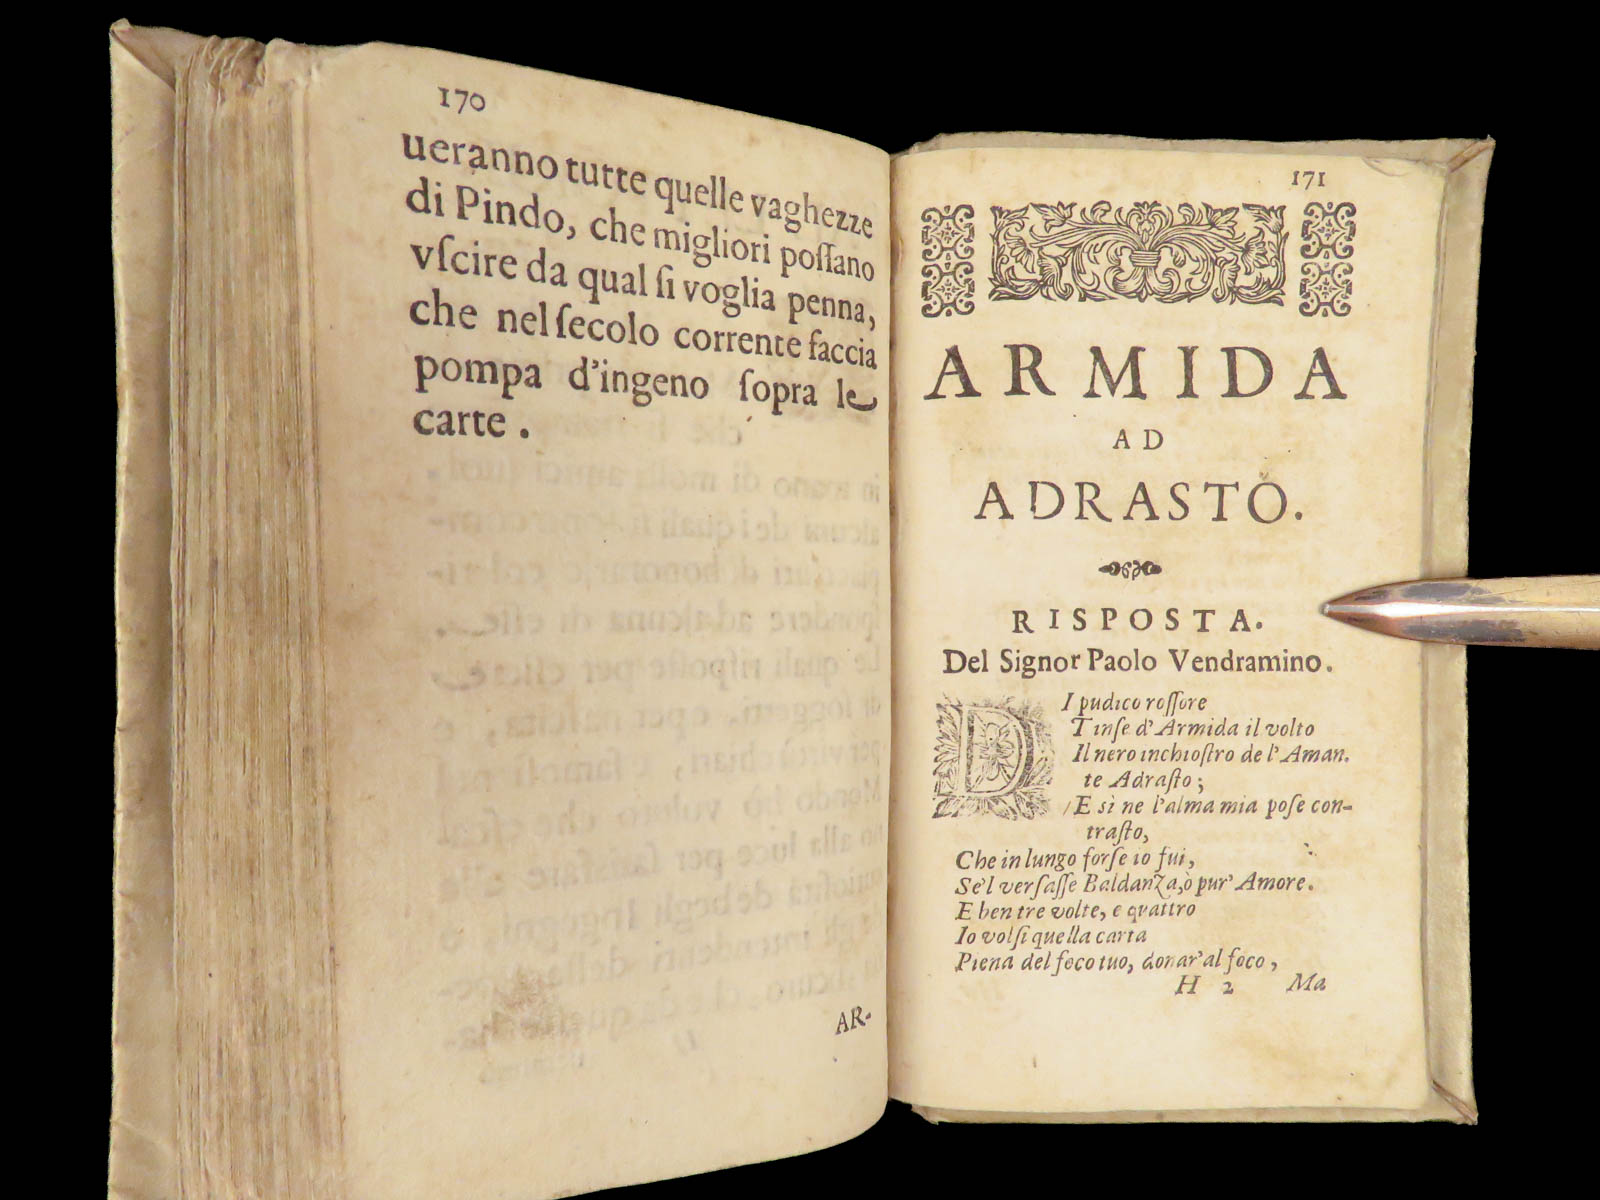 170
ueranno tutte quelle vaghezze
di Pindo, che migliori poſſano
vſcire da qual ſi voglia penna,
che nel ſecolo corrente faccia
pompa d'ingeno ſopra le
carte.
AR-
171
ARMIDA
AD
ADRASTO.
RISPOSTA.
Del Signor Paolo Vendramino.
DI pudico roſſore
Tinſe d'Armida il volto
Il nero inchioſtro de l'Aman-
te Adraſto;
E sì ne l'alma mia poſe con-
traſto,
Che in lungo forſe io fui,
Se'l verſaſſe Baldanza, ò pur' Amore.
E ben tre volte, e quattro
Io volſi quella carta
Piena del foco tuo, donar' al foco,
H 2 Ma